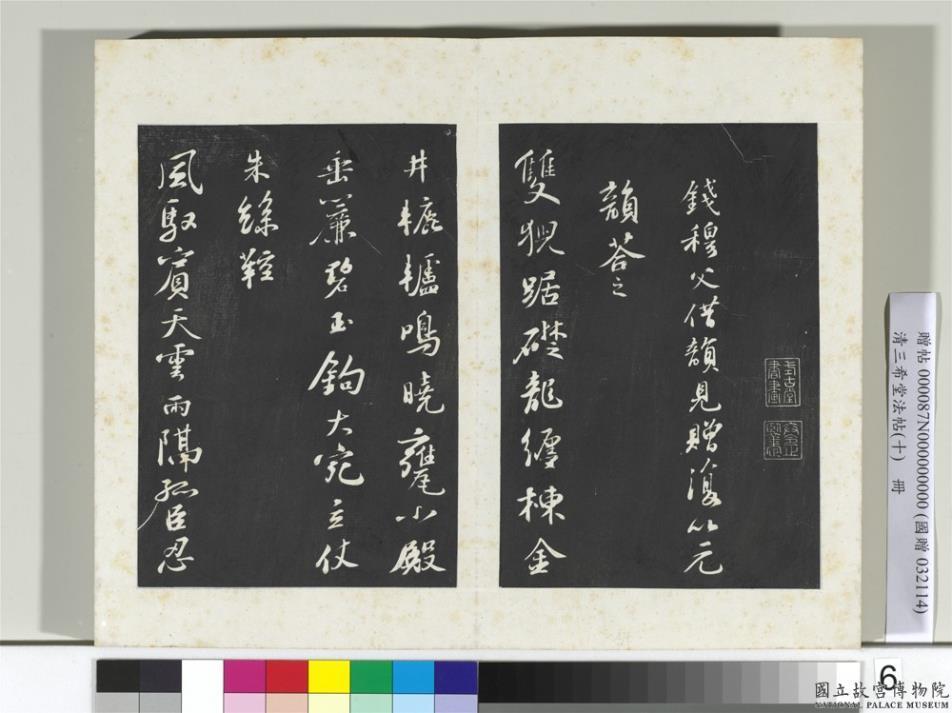 錢穆父借韻見贈復以元
韻荅之
雙猊踞礎龍纏棟金
井轆轤鳴曉甕小殿
垂簾碧玉鉤大宛立仗
朱絲鞚
風馭賓天雲雨隔孤臣忍
贈帖 000087N000000000 (國贈 032114)
清三希堂法帖(十) 冊
6
國立故宮博物院
NATIONAL PALACE MUSEUM